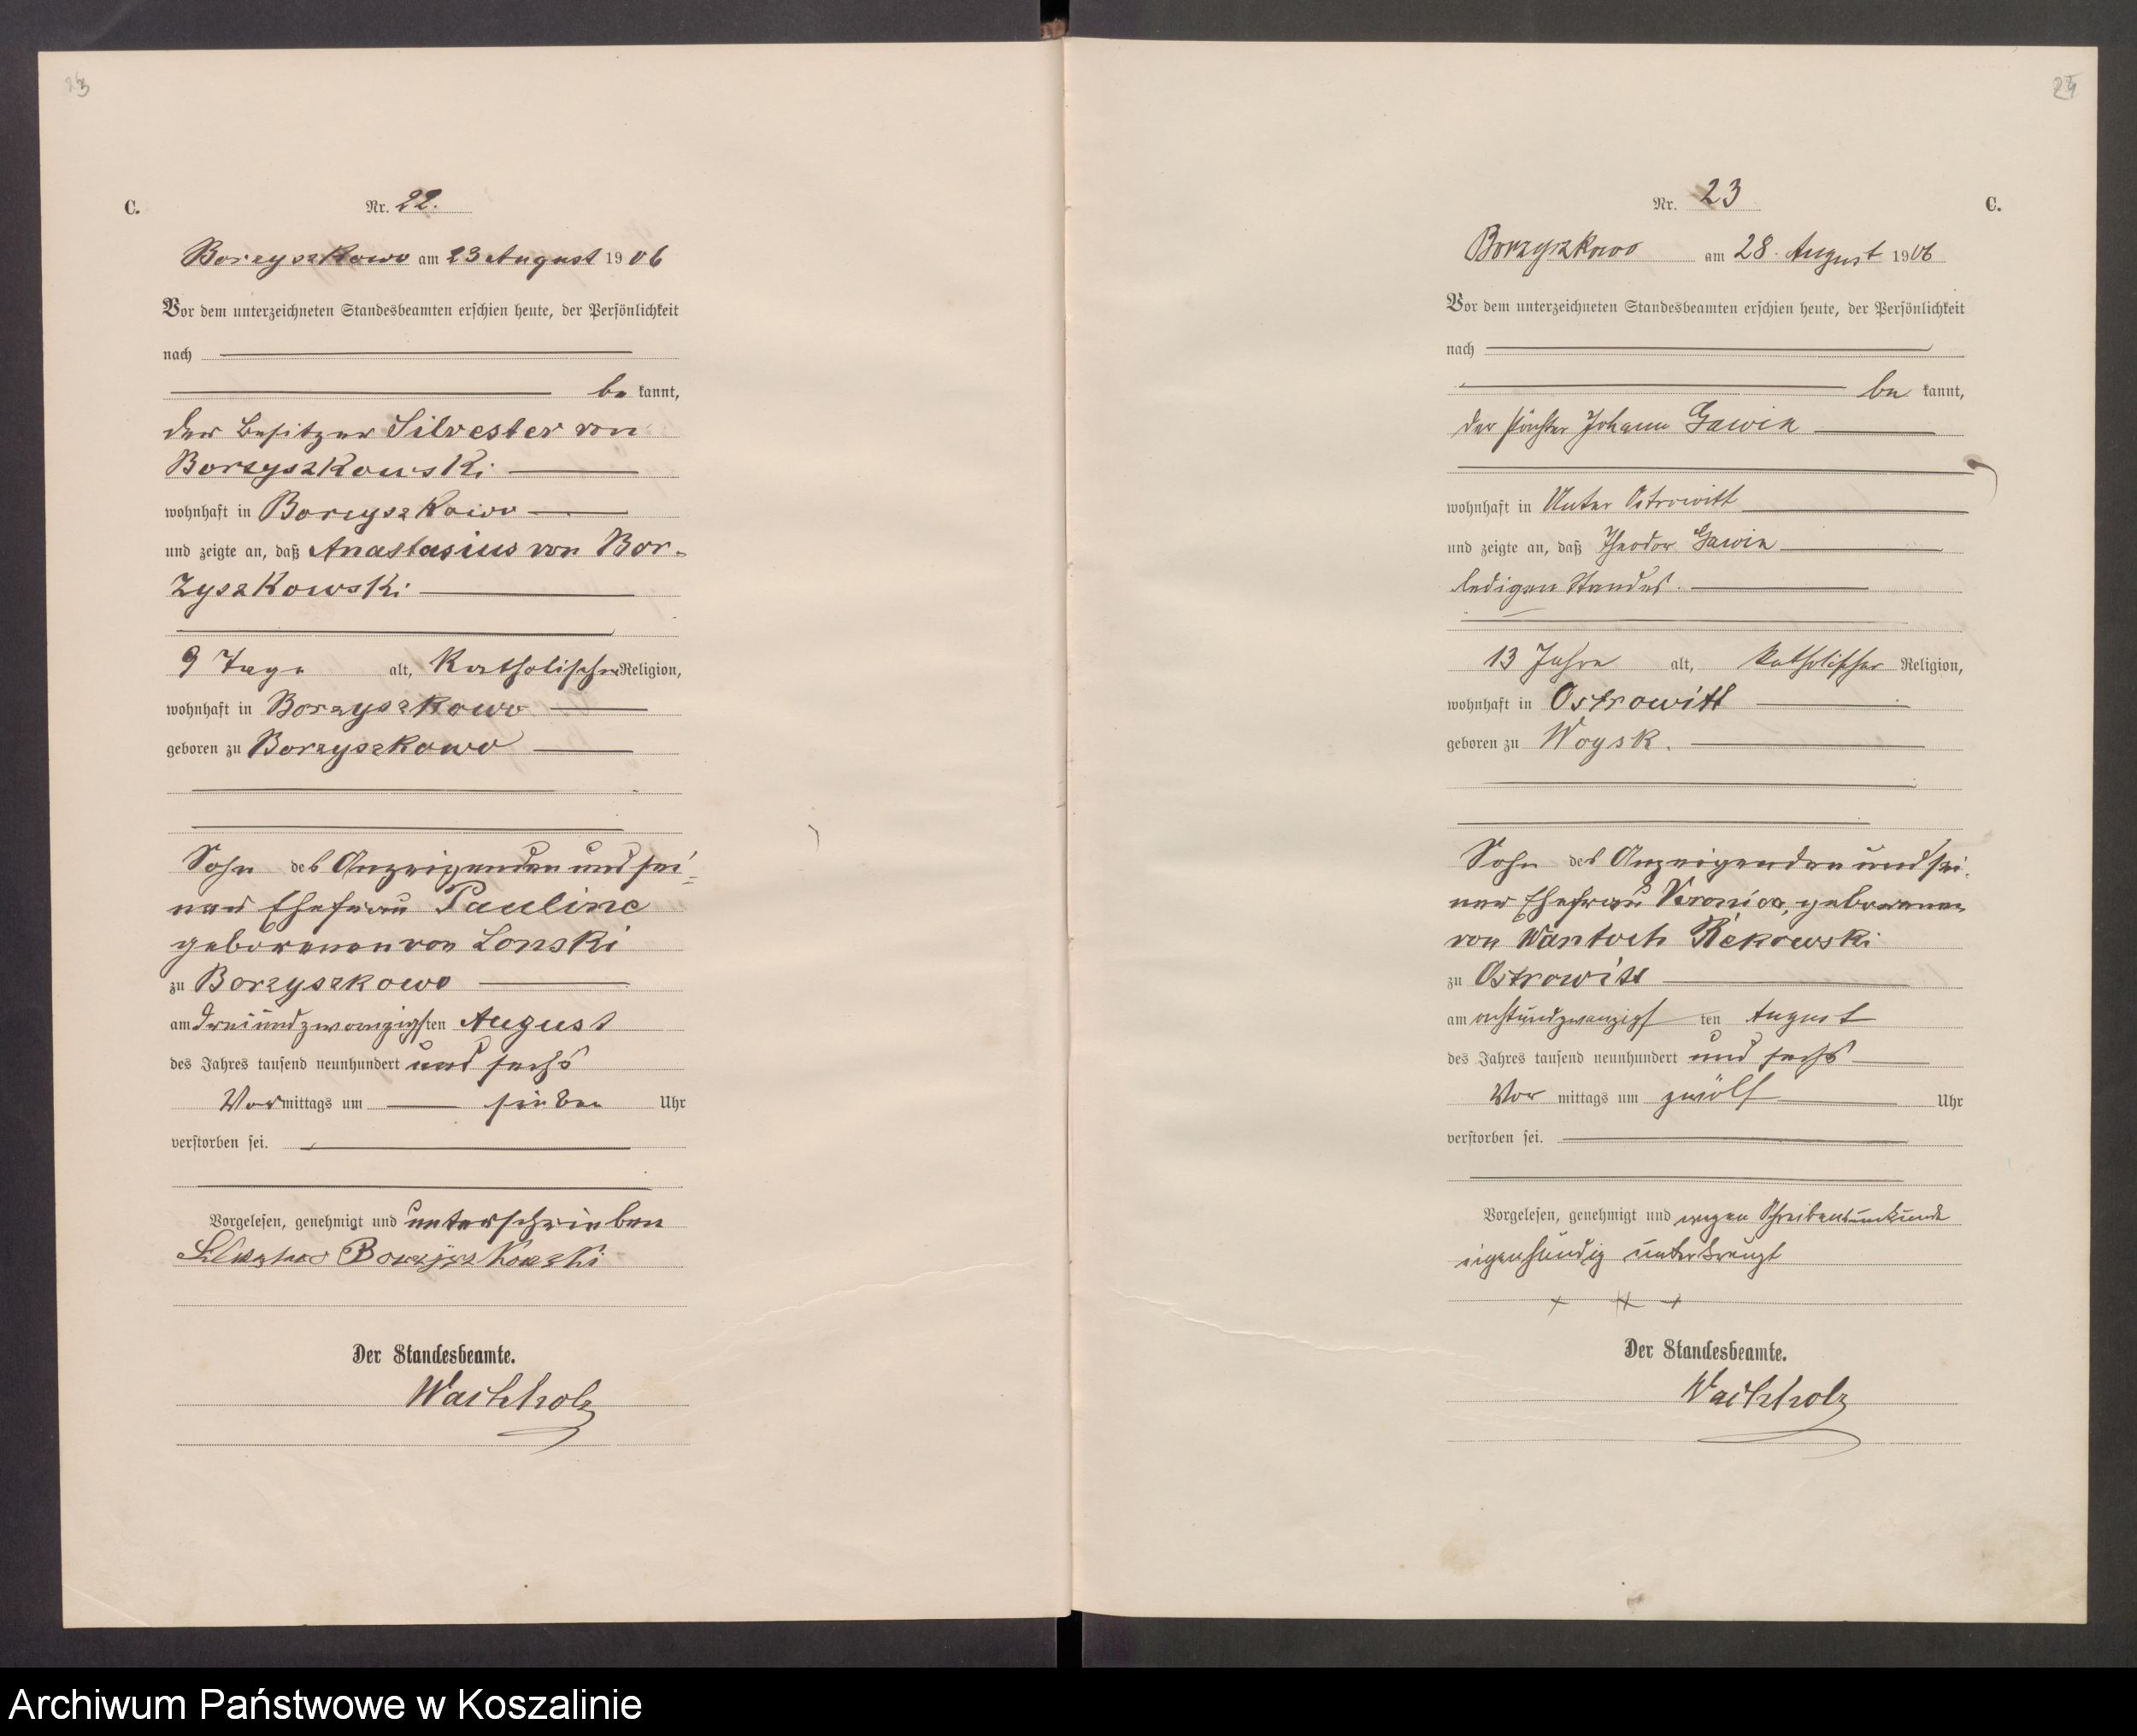 23
C.
Nr. 22.
Borzyszkowo am 23 August 1906
Vor dem unterzeichneten Standesbeamten erschien heute, der Persönlichkeit
nach
be kannt,
der Besitzer Silvester von
Borzyszkowski
wohnhaft in Borzyszkowo
und zeigte an, daß Anastasius von Bor-
zyszkowski
9 Tage alt, katholischer Religion,
wohnhaft in Borzyszkowo
geboren zu Borzyszkowo
Sohn des Anzeigenden und sei-
ner Ehefrau Pauline
geborenen von Lonski
zu Borzyszkowo
am dreiundzwanzigsten August
des Jahres tausend neunhundert und sechs
Vormittags um sieben Uhr
verstorben sei.
Vorgelesen, genehmigt und unterschrieben
Borzyszkowski
Der Standesbeamte.
Wachholz
24
Nr. 23
C.
Borzyszkowo am 28. August 1906
Vor dem unterzeichneten Standesbeamten erschien heute, der Persönlichkeit
nach
be kannt,
der Pächter Johann Gawin
wohnhaft in Unter Ostrowitt
und zeigte an, daß Theodor Gawin
ledigen Standes.
13 Jahre alt, katholischer Religion,
wohnhaft in Ostrowitt
geboren zu Woysk.
Sohn des Anzeigenden und sei-
ner Ehefrau Veronica, geborenen
von Wantoch Rekowski
zu Ostrowitt
am achtundzwanzigsten August
des Jahres tausend neunhundert und sechs
Vor mittags um zwölf Uhr
verstorben sei.
Vorgelesen, genehmigt und wegen Schreibensunkunde
eigenhändig unterkreuzt
+ + +
Der Standesbeamte.
Wachholz
Archiwum Państwowe w Koszalinie